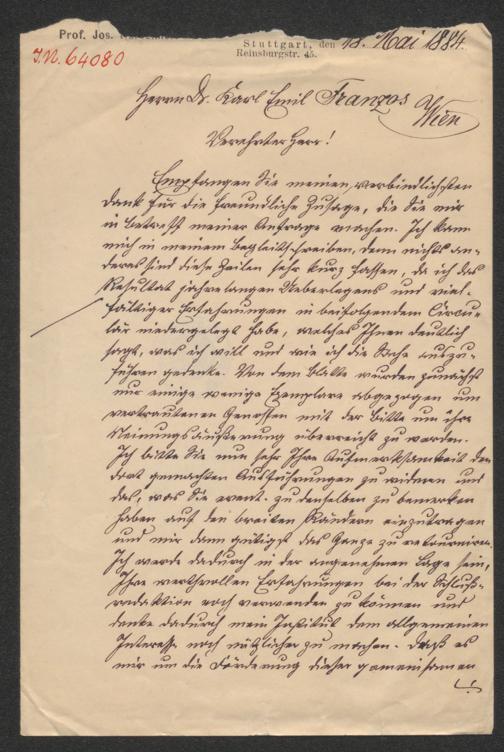 Prof. Jos.
Stuttgart, den 18. Mai 1884.
Reinsburgstr. 45.
J.N. 64080
Herrn Dr. Karl Emil Franzos
Wien
Verehrter Herr!
Empfangen Sie meinen verbindlichsten
Dank für die freundliche Zusage, die Sie mir
in betreff meiner Anfrage machen. Ich kann
mich in meinem Begleitschreiben, denn nichts an-
deres sind diese Zeilen sehr kurz fassen, da ich das
Resultat jahrelangen Ueberlegens und viel-
fältiger Erfahrungen in beifolgendem Circu-
lär niedergelegt habe, welches Ihnen deutlich
sagt, was ich will und wie ich die Sache auszu-
führen gedenke. Von dem Blatte wurden zunächst
nur einige wenige Exemplare abgezogen um
vertrauten Genossen mit der Bitte um ihre
Meinungsäußerung überreicht zu werden.
Ich bitte Sie nun sehr Ihre Aufmerksamkeit den
dort gemachten Ausführungen zu widmen und
das, was Sie event. zu denselben zu bemerken
haben auf den breiten Rändern einzutragen
und mir dann gütigst das Ganze zu retournieren.
Ich werde dadurch in der angenehmen Lage sein,
Ihre werthvollen Erfahrungen bei der Schluß-
redaktion noch verwenden zu können und
denke dadurch mein Institut dem allgemeinen
Interesse noch nützlicher zu machen. Daß es
mir um die Förderung dieser gemeinsamen